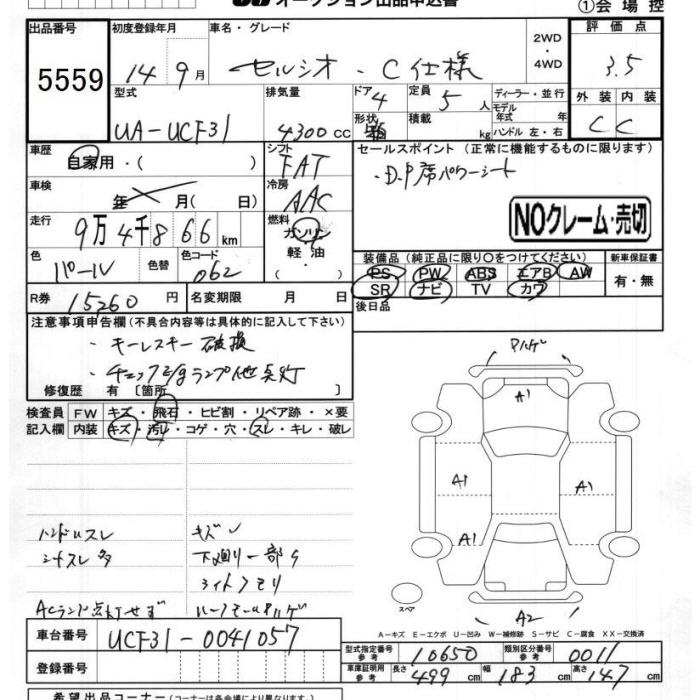 オークション出品申込書
①会場控
出品番号
5559
初度登録年月
14年9月
車名・グレード
セルシオ・C仕様
2WD
・
4WD
評価点
3.5
型式
UA-UCF31
排気量
4300cc
ドア
4
形状
箱
定員
5人
積載
kg
ディーラー・並行
モデル年式 年
ハンドル 左・右
外装 内装
C C
車歴
自家用・( )
シフト
FAT
セールスポイント (正常に機能するものに限ります)
・D.P席パワーシート
車検
年 月( 日)
冷房
AAC
NOクレーム・売切
走行
9万4千866km
燃料
ガソリン
軽油
・
色
パール
色替
色コード
062
装備品 (純正品に限り○をつけてください)
PS PW ABS エアB AW
SR ナビ TV カワ
新車保証書
有・無
R券 15260円
名変期限 月 日
後日品
注意事項申告欄(不具合内容等は具体的に記入して下さい)
・キーレスキー破損
・チェックE/gランプ他点灯
修復歴 有 [箇所 ]
検査員
記入欄
FW キズ・飛石・ヒビ割・リペア跡・×要
内装 キズ・汚れ・コゲ・穴・スレ・キレ・破レ
ハンドルスレ
シートスレ多
ACランプ点灯せず
キズ
下廻り一部サ
ライトクモリ
Aハゲ
A1
A1
A1
A2
スペア
A-キズ E-エクボ U-凹み W-補修跡 S-サビ C-腐食 XX-交換済
車台番号
UCF31-0041057
登録番号
型式指定番号
参考
10650
類別区分番号
参考
0011
車庫証明用
参考
長さ 499cm
幅 183cm
高さ 147cm
希望出品コーナー(コーナーは各会場により異なります。)